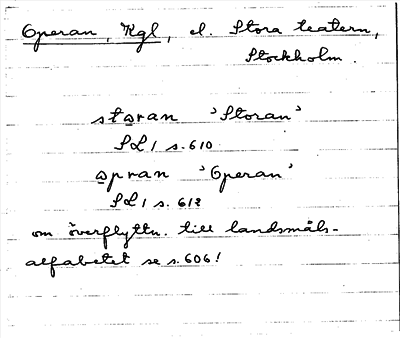 Operan, Kgl, el. Stora teatern,
Stockholm.
storan 'Storan'
SL 1 s. 610
opran 'Operan'
SL 1 s. 612
om överflyttn. till landsmåls-
alfabetet se s. 606!